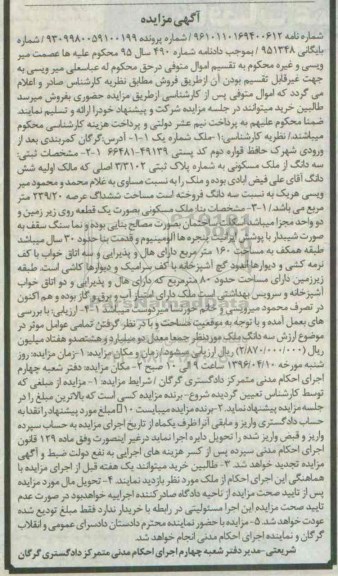 آگهی مزایده
شماره نامه ۹۶۱۰۱۱۰۱۶۹۴۰۰۶۱۲ / شماره پرونده ۹۳۰۹۹۸۰۰۵۹۱۰۰۱۹۹ / شماره
بایگانی ۹۵۱۳۴۸ / بموجب دادنامه شماره ۴۹۰ سال ۹۵ محکوم علیه ها عصمت میر
ویسی و غیره محکوم به تقسیم اموال متوفی درحق محکوم له عباسعلی میر ویسی به
جهت غیرقابل تقسیم بودن آن ازطریق فروش مطابق نظریه کارشناس صادر و اعلام
می گردد که اموال متوفی پس از کارشناسی ازطریق مزایده حضوری بفروش میرسد
طالبین خرید میتوانند در جلسه مزایده شرکت و پیشنهاد خودرا ارائه و تسلیم نمایند.
ضمنا محکوم علیهم به پرداخت نیم عشر دولتی و پرداخت هزینه کارشناسی محکوم
میباشند/ نظریه کارشناس: ۱-ملک شماره یک ۱-۱- آدرس:گرگان کمربندی بعد از
ورودی شهرک حافظ قواره دوم کد پستی ۴۹۱۳۹-۶۶۴۸۱ ۲-۱- مشخصات ثبتی:
سه دانگ از ملک مسکونی به شماره پلاک ثبتی ۳/۳۱۰۲ اصلی که مالک اولیه شش
دانگ آقای علی فیض ابادی بوده و ملک را به نسبت مساوی به غلام محمد و محمود میر
ویسی هریک به نسبت سه دانگ فروخته است مساحت ششدانگ عرصه ۲۳۹/۲۰ متر
مربع می باشد/ ۳-۱- مشخصات بنا: ملک مسکونی بصورت یک قطعه روی زیر زمین و
دو واحد مجزا میباشد اسکلت ساختمان بصورت مصالح بنایی بوده و نما سنگ سقف به
صورت شیبدار با پوشش ایرانیت پنجره ها آلومینیوم و قدمت بنا حدود ۳۰ سال میباشد
طبقه همکف به مساحت ۱۶۰ متر مربع دارای هال و پذیرایی و سه اتاق خواب با کف
نرمه کشی و دیوارها اندود گچ آشپزخانه با کف سرامیک و دیوارها کاشی است. طبقه
زیرزمین دارای مساحت حدود ۸۰ مترمربع که دارای هال و پذیرایی و دو اتاق خواب
آشپزخانه و سرویس بهداشتی است ملک دارای امتیاز آب و برق و گاز بوده و هم اکنون
در تصرف محمود میرویسی و خانم خورنسا میردوست میباشد ۴-۱- ارزیابی: با بررسی
های بعمل آمده و با توجه به موقعیت مساحت و با در نظر گرفتن تمامی عوامل موثر در
موضوع ارزش سه دانگ ملک موردنظر جمعا معدل دو میلیارد و هشتصدو هفتاد میلیون
ریال (۲/۸۷۰/۰۰۰/۰۰۰) ریال ارزیابی میشود/ زمان و مکان مزایده: ۱-زمان مزایده: روز
شنبه مورخه ۱۳۹۶/۰۴/۱۰ ساعت ۹ الی ۱۰ صبح ۲- مکان مزایده: دفتر شعبه چهارم
اجرای احکام مدنی متمرکز دادگستری گرگان / شرایط مزایده: ۱- مزایده از مبلغی که
توسط کارشناس تعیین گردیده شروع- برنده مزایده کسی است که بالاترین مبلغ را در
جلسه مزایده پیشنهاد نماید. ۲-برنده مزایده میبایست ۱۰٪ مبلغ مورد پیشنهاد را نقدا به
حساب دادگستری واریز و مابقی آنرا ظرف یکماه از تاریخ اجرای مزایده به حساب سپرده
واریز و قبض واریز شده را تحویل دایره اجرا نماید درغیر اینصورت وفق ماده ۱۲۹ قانون
اجرای احکام مدنی سپرده پس از کسر هزینه های اجرایی به نفع دولت ضبط و آگهی
مزایده تجدید خواهد شد. ۳- طالبین خرید میتوانند یک هفته قبل از اجرای مزایده با
هماهنگی این اجرای احکام از ملک مورد نظر بازدید نمایند. ۴- تحویل مال مورد مزایده
پس از تایید صحت مزایده از ناحیه دادگاه صادر کننده اجراییه خواهدبود در صورت عدم
تایید صحت مزایده این اجرا مسئولیتی در رابطه با خریدار ندارد فقط مبلغ تودیع شده
عودت خواهد شد. ۵- مزایده با حضور نماینده محترم دادستان دادسرای عمومی و انقلاب
گرگان و نماینده اجرای احکام مدنی انجام خواهد شد.
شریعتی -مدیر دفتر شعبه چهارم اجرای احکام مدنی متمرکز دادگستری گرگان